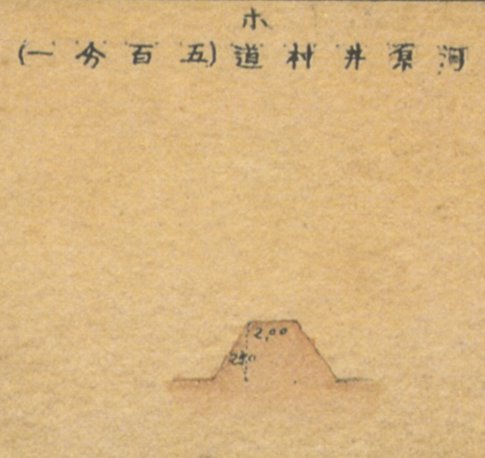 ホ
河原井村道(五百分一)
2,00
250